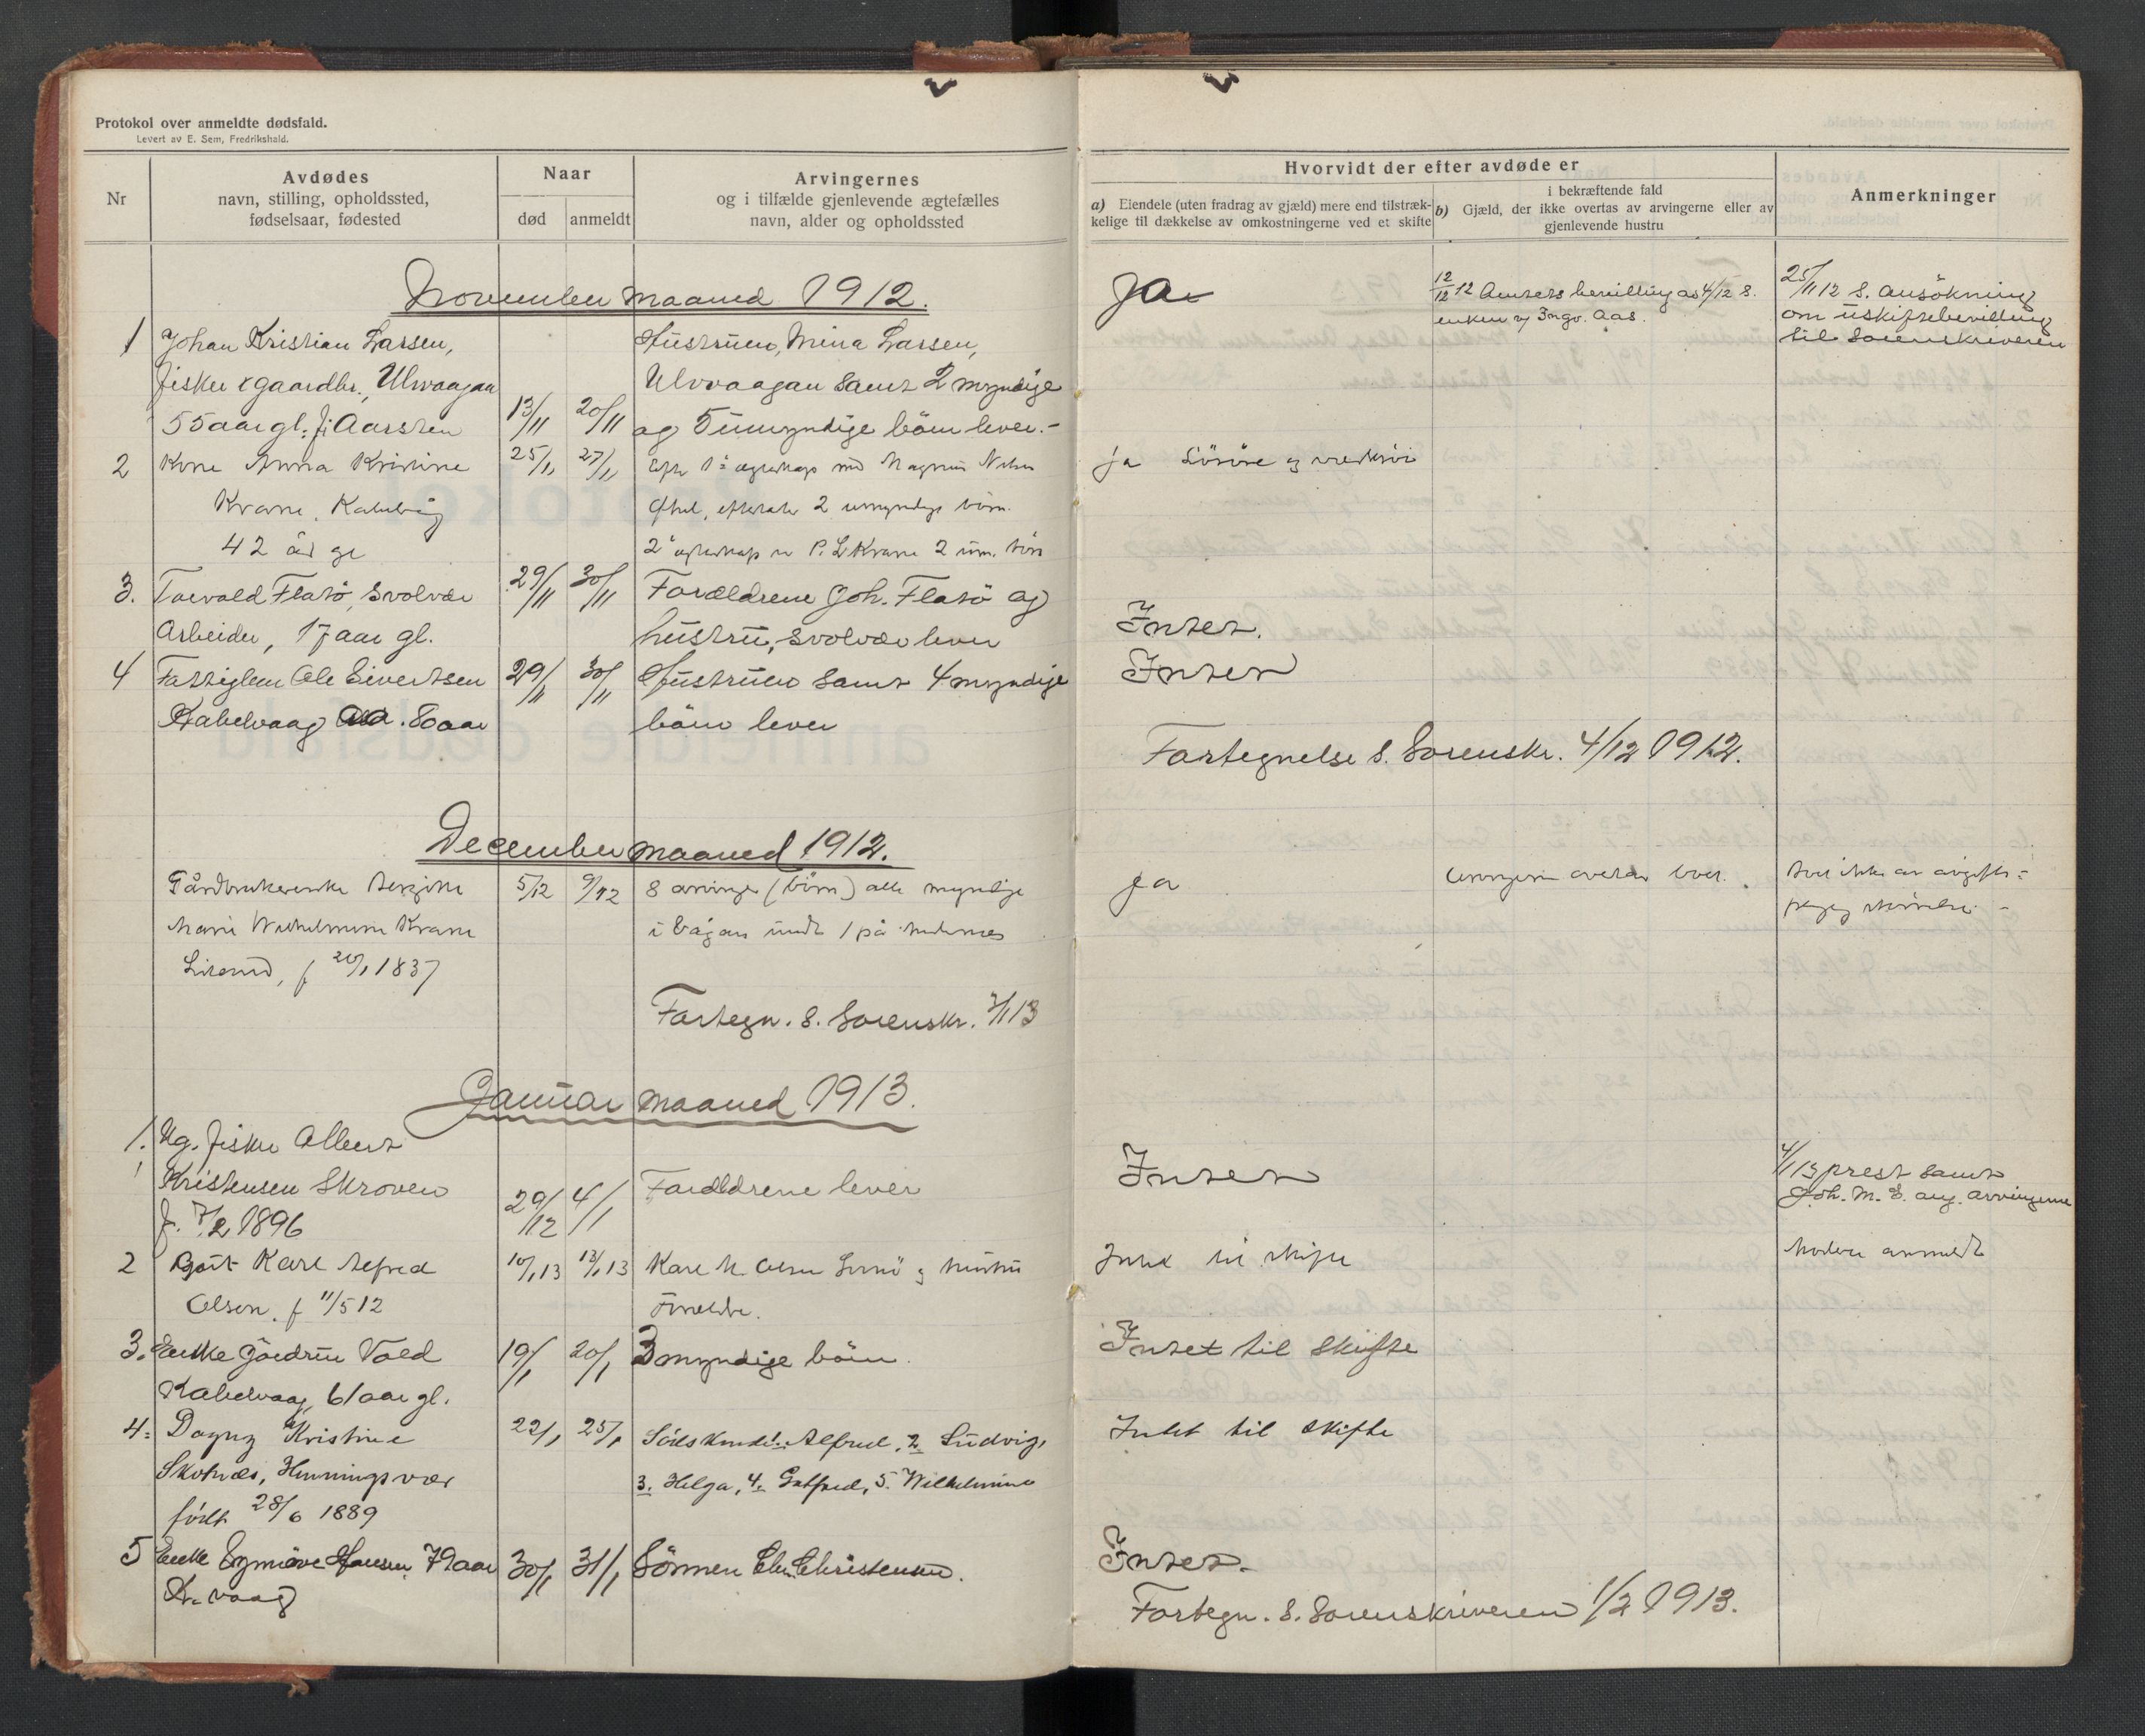 Protokol over anmeldte dødsfald.
Levert av E. Sem, Fredrikshald.
Nr
Avdødes
navn, stilling, opholdssted,
fødselsaar, fødested
Naar
død
anmeldt
Arvingernes
og i tilfælde gjenlevende ægtefælles
navn, alder og opholdssted
Hvorvidt der efter avdøde er
a) Eiendele (uten fradrag av gjæld) mere end tilstræk-
kelige til dækkelse av omkostningerne ved et skifte
i bekræftende fald
b) Gjæld, der ikke overtas av arvingerne eller av
gjenlevende hustru
Anmerkninger
November maaned 1912.
1 Johan Kristian Larsen,
fisker & gaardbr., Ulvaagan
55 aar gl. f. i Aarsten
13/11 20/11
Hustruen, Mina Larsen,
Ulvaagan samt 2 myndige
og 5 umyndige börn lever.-
Ja
12/12 12 Amtets bevilling as 4/12 s.
enken v/ Ingv. Aas.
25/11 12 s. ansökning
om uskiftebevilling
til Sorenskriveren
2 Kone Anna Kristine
Krane, Kabelvåg
42 år gl
25/11 27/11
Efter 1ste ægteskap med Magnus
efterlater 2 umyndige börn.
2det ægteskap m P. L. Krane 2 um. börn
ja Lösöre og
3. Torvald Flatö, Svolvær
Arbeider, 17 aar gl.
29/11 30/11
Forældrene Joh. Flatö og
hustru, Svolvær lever
Intet.
4 Fattiglem Ole Sivertsen
Kabelvaag 80 aar
29/11 30/11
Hustruen samt 4 myndige
börn lever
Intet
Fortegnelse s. Sorenskr. 4/12 1912.
December maaned 1912.
Gårdbrukerenke Bergitte
Marie Wilhelmine Krane
f 20/1 1837
5/12 9/12
8 arvinger (börn) alle myndige
i Vågan undt 1 på
ja
Arvingerne overtar
Fortegn. s. Sorenskr. 2/1 13
Januar maaned 1913.
1. Ug. fisker Albert
Kristensen Skroven
f. 7/2 1896
29/12 4/1
Forældrene lever
Intet
4/1 13 prest samt
Joh. M. E. ang. arvingerne
2 Gut Karl Alfred
Olsen. f 11/5 12
10/1 13 13/1 13
Karl M. Olsen og hustru
foreldre.
Intet til skifte
Moderen anmeldt
3. Enke Gurdrun Vold
Kabelvaag, 61 aar gl.
19/1 20/1
3 myndige börn.
Intet til skifte
4. Dagny Kristine
Skotnæs, Henningsvær
født 28/6 1889
22/1 25/1
Södskende: 1. Alfred, 2. Ludvig,
3. Helga, 4. Gotfred, 5. Wilhelmine
Intet til skifte
5 Enke Synnöve Hansen, 79 aar
K.vaag
30/1 31/1
Sönnen Chr. Christensen.
Intet.
Fortegn. s. Sorenskriveren 1/2 1913.